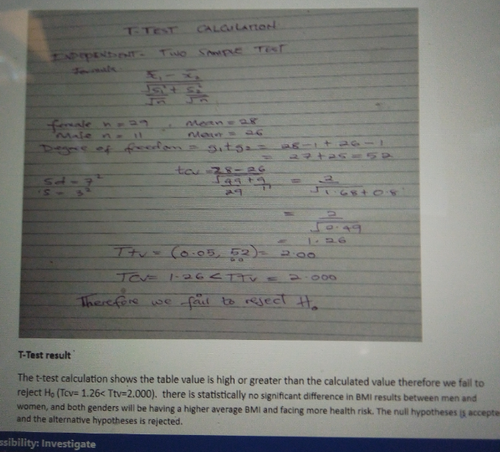 T-TEST CALCULATION
INDEPENDENT - TWO SAMPLE TEST
formula
x̄₁ - x̄₂
√s₁²/√n + s₂²/√n
female n = 29, mean = 28
male n = 11 mean = 26
Degree of freedom = g₁+g₂ = 28-1 + 26-1
= 27+25 = 52
Sd = 7²
S = 3²
tcv = 28-26 / √49/29 + 9/11 = 2 / √1.68+0.8
= 2 / √2.49
= 1.26
Ttv = (0.05, 52) = 2.00
Tcv = 1.26 < Ttv = 2.000
Therefore we fail to reject H₀
T-Test result
The t-test calculation shows the table value is high or greater than the calculated value therefore we fail to
reject H₀ (Tcv= 1.26< Ttv=2.000). there is statistically no significant difference in BMI results between men and
women, and both genders will be having a higher average BMI and facing more health risk. The null hypotheses is accepte
and the alternative hypotheses is rejected.
ssibility: Investigate